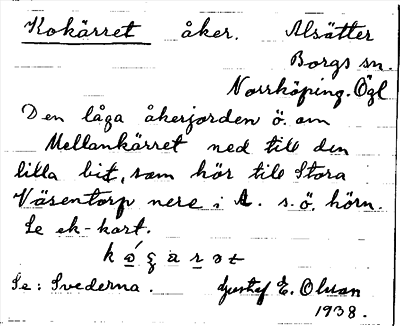 Kokärret åker. Alsätter
Borgs sn.
Norrköping. Ögl
Den låga åkerjorden ö. om
Mellankärret ned till den
lilla bit, som hör till Stora
Väsentorp nere i s.ö. hörn.
Se ek-kart.
Se: Svederna. Gustaf E. Olsson
1938.